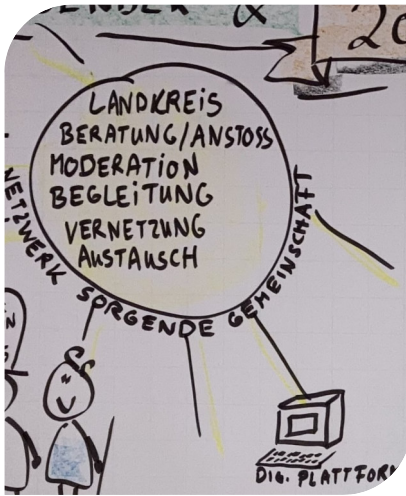 &
20
LANDKREIS
BERATUNG/ANSTOSS
MODERATION
BEGLEITUNG
VERNETZUNG
AUSTAUSCH
NETZWERK SORGENDE GEMEINSCHAFT
DIG. PLATTFORM